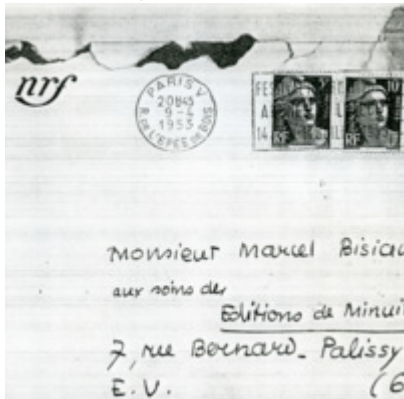 nrf
PARIS V
20H45
9-4
1953
R. DE L'EPEE DE BOIS
FES
A L
14 IL
10F
RF RF
Monsieur Marcel Bisiau
aux soins des
Editions de Minuit
7, rue Bernard-Palissy
E.V. (6